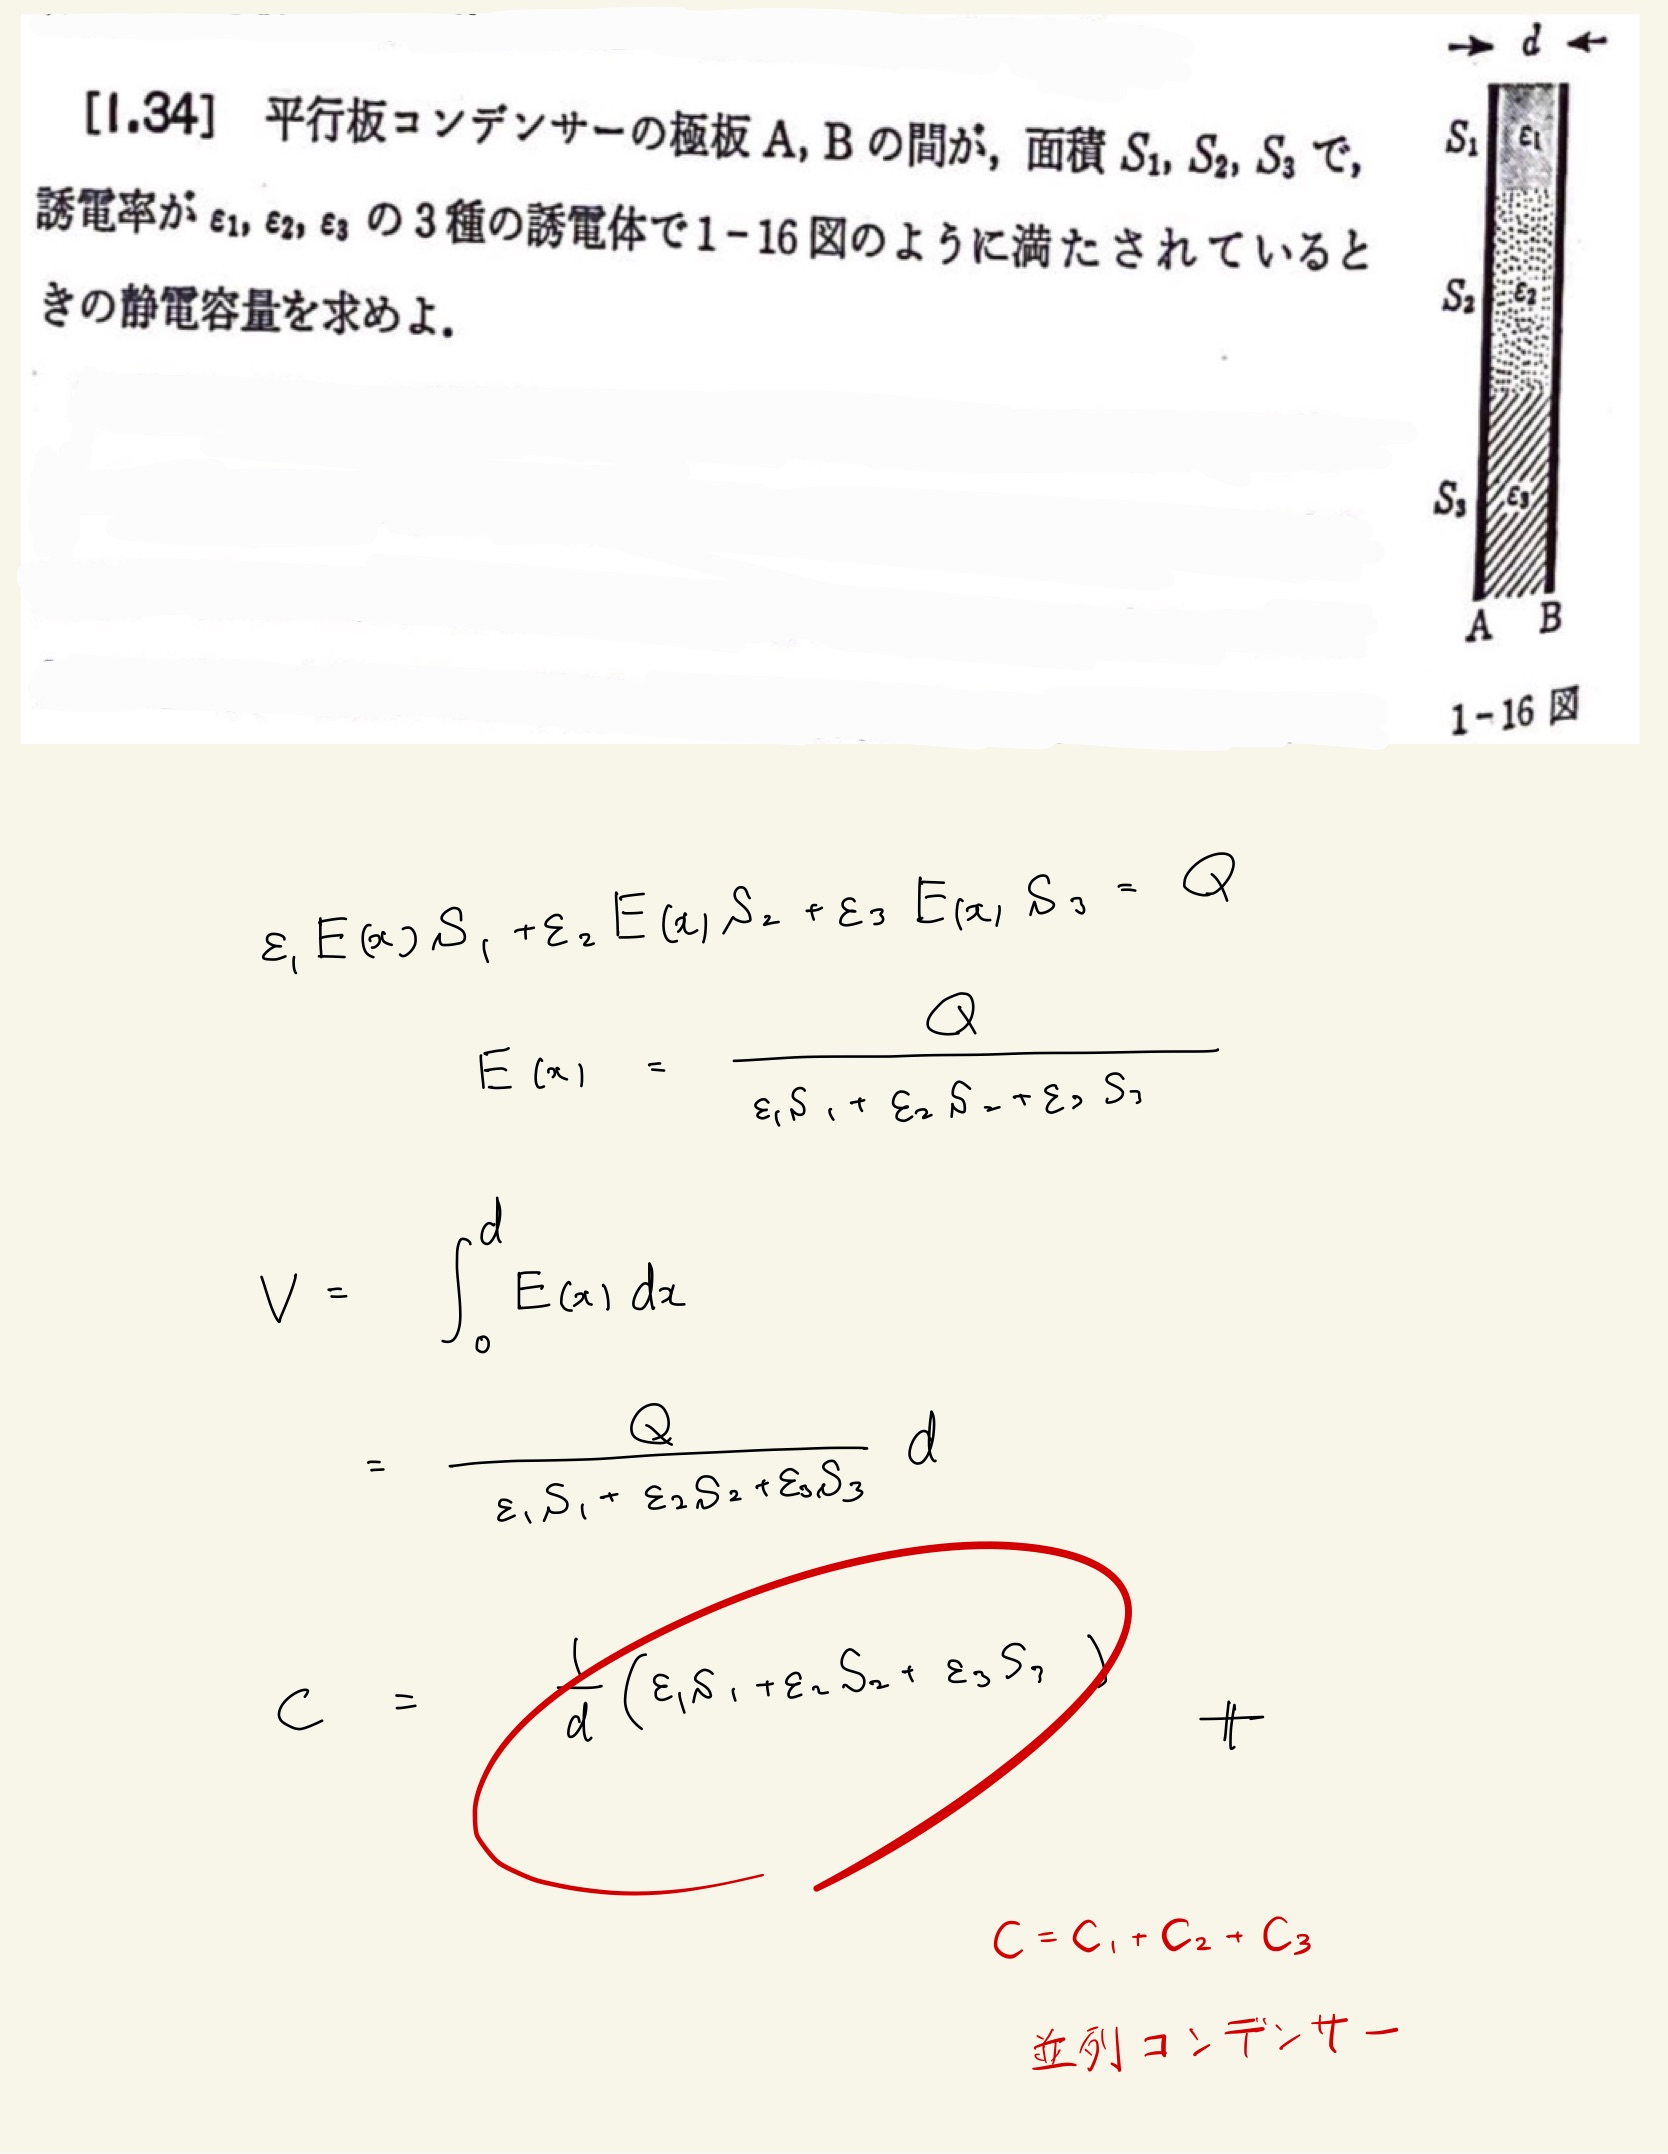 [1.34] 平行板コンデンサーの極板 A, B の間が, 面積 S₁, S₂, S₃ で,
誘電率が ε₁, ε₂, ε₃ の3種の誘電体で1-16図のように満たされていると
きの静電容量を求めよ.
→ d ←
S₁ ε₁
S₂ ε₂
S₃ ε₃
A B
1-16 図
ε₁ E(x) S₁ + ε₂ E(x) S₂ + ε₃ E(x) S₃ = Q
E(x) = Q / (ε₁S₁ + ε₂S₂ + ε₃S₃)
V = ∫₀ᵈ E(x) dx
= Q / (ε₁S₁ + ε₂S₂ + ε₃S₃) d
C = 1/d (ε₁S₁ + ε₂S₂ + ε₃S₃)
C = C₁ + C₂ + C₃
並列コンデンサー